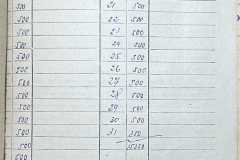 500 21 500
500 22 500
500 23 500
500 24 500
500 25 500
500 26 500
500 27 500
500 28 500
500 29 500
500 30 500
500 31 250
500